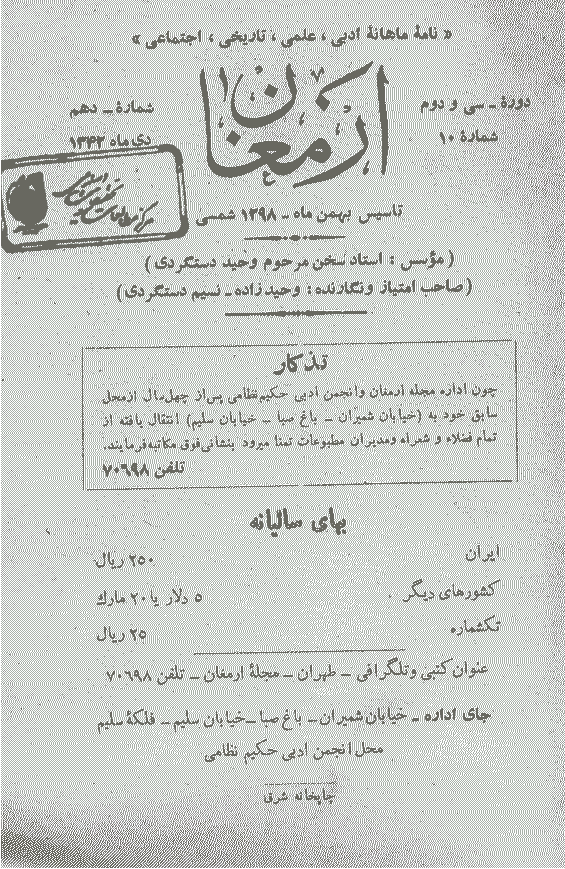 « نامهٔ ماهانهٔ ادبی ، علمی ، تاریخی ، اجتماعی »
ارمغان
دورهٔ ـ سی و دوم
شمارهٔ ۱۰
شمارهٔ ـ دهم
دی ماه ۱۳۴۲
تاسیس بهمن ماه ـ ۱۲۹۸ شمسی
(مؤسس : استاد سخن مرحوم وحید دستگردی)
(صاحب امتیاز و نگارنده : وحید زاده ـ نسیم دستگردی)
تذکار
چون اداره مجله ارمغان و انجمن ادبی حکیم نظامی پس از چهل سال از محل
سابق خود به (خیابان شمیران ـ باغ صبا ـ خیابان سلیم) انتقال یافته از
تمام فضلاء و شعراء و مدیران مطبوعات تمنا میرود بنشانی فوق مکاتبه فرمایند.
تلفن ۷۰۶۹۸
بهای سالیانه
ایران ۲۵۰ ریال
کشورهای دیگر ۵ دلار یا ۲۰ مارك
تکشماره ۲۵ ریال
عنوان کتبی و تلگرافی ـ طهران ـ مجلهٔ ارمغان ـ تلفن ۷۰۶۹۸
جای اداره ـ خیابان شمیران ـ باغ صبا ـ خیابان سلیم ـ فلکهٔ سلیم
محل انجمن ادبی حکیم نظامی
چاپخانه شرق